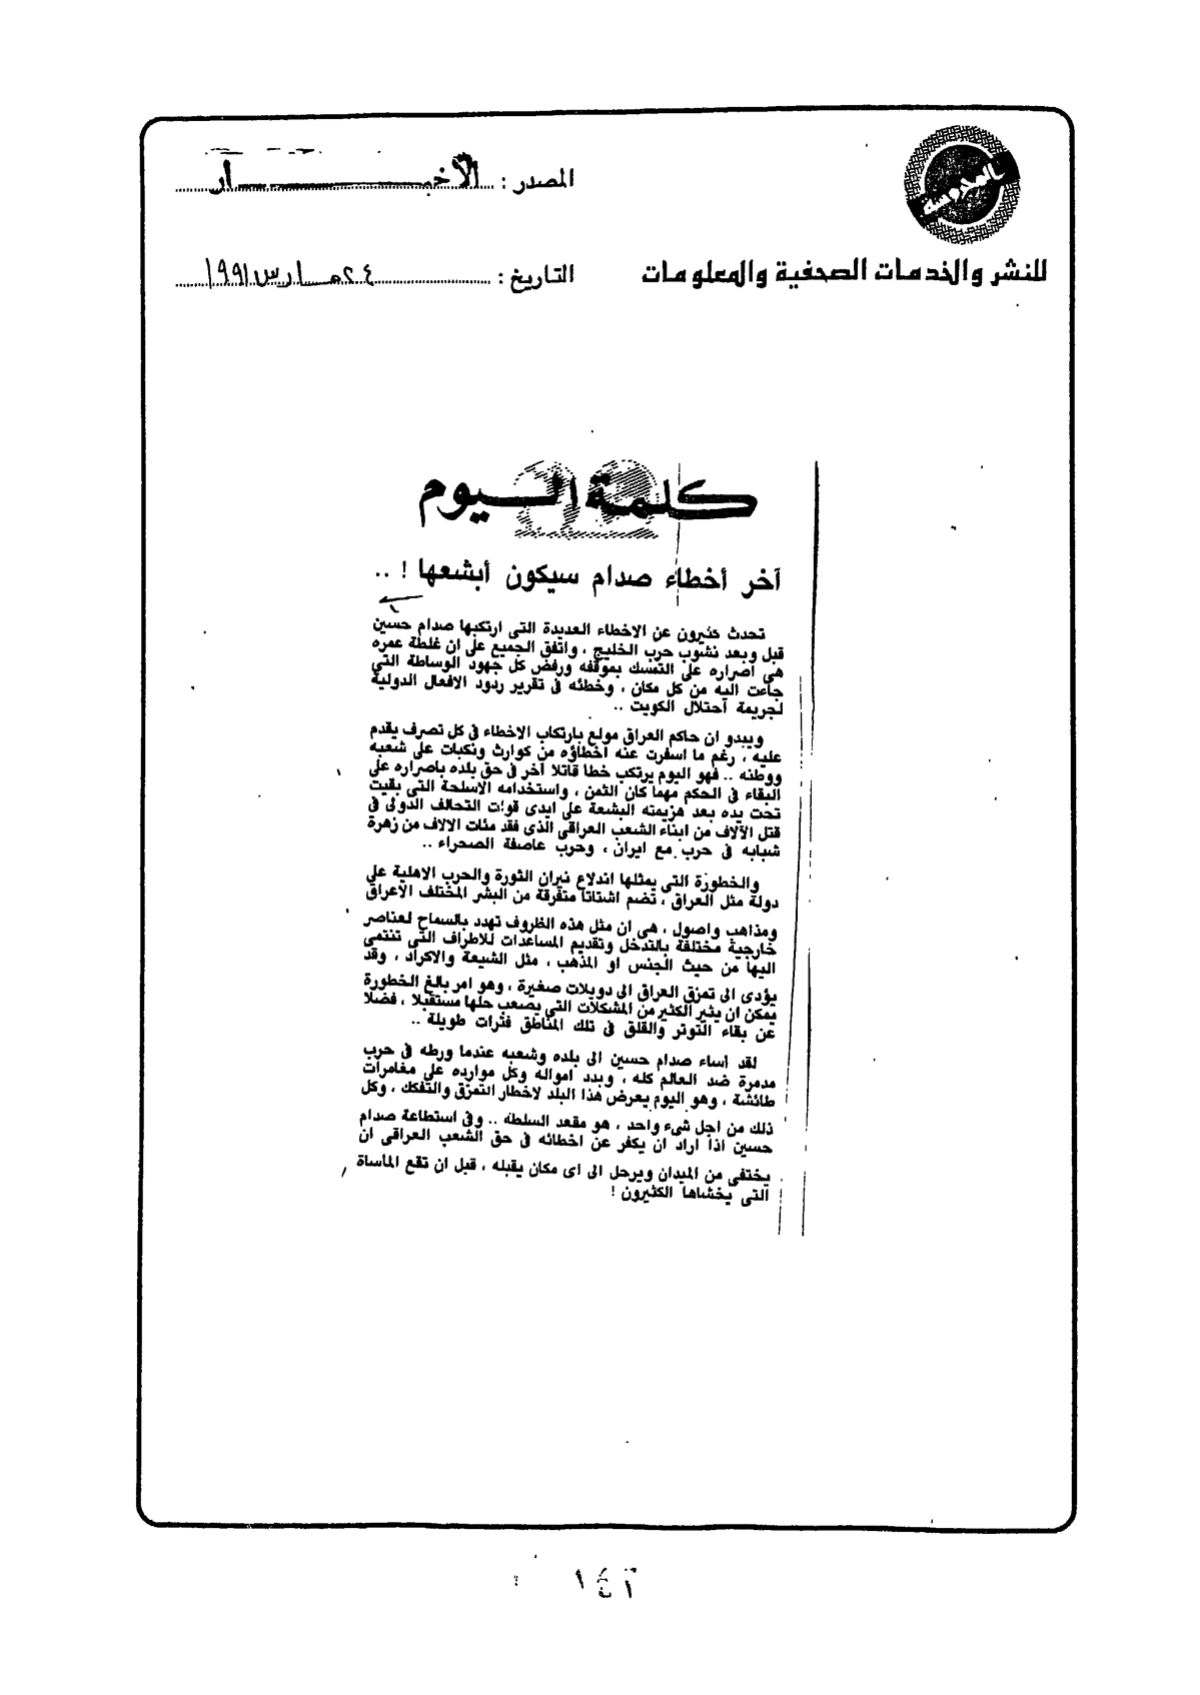 المصدر : الأخبار
للنشر والخدمات الصحفية والمعلومات
التاريخ : ٢٤ مارس ١٩٩١
كلمة اليوم
آخر أخطاء صدام سيكون أبشعها ! ..
تحدث كثيرون عن الاخطاء العديدة التى ارتكبها صدام حسين
قبل وبعد نشوب حرب الخليج ، واتفق الجميع على ان غلطة عمره
هى اصراره على التمسك بموقفه ورفض كل جهود الوساطة التى
جاءت اليه من كل مكان ، وخطئه فى تقرير ردود الافعال الدولية
لجريمة احتلال الكويت ..
ويبدو ان حاكم العراق مولع بارتكاب الاخطاء فى كل تصرف يقدم
عليه ، رغم ما اسفرت عنه اخطاؤه من كوارث ونكبات على شعبه
ووطنه .. فهو اليوم يرتكب خطا قاتلا آخر فى حق بلده باصراره على
البقاء فى الحكم مهما كان الثمن ، واستخدامه الاسلحة التى بقيت
تحت يده بعد هزيمته البشعة على ايدى قوات التحالف الدولى فى
قتل الآلاف من ابناء الشعب العراقى الذى فقد مئات الالاف من زهرة
شبابه فى حرب مع ايران ، وحرب عاصفة الصحراء ..
والخطورة التى يمثلها اندلاع نيران الثورة والحرب الاهلية على
دولة مثل العراق ، تضم اشتاتا متفرقة من البشر المختلف الاعراق
ومذاهب واصول ، هى ان مثل هذه الظروف تهدد بالسماح لعناصر
خارجية مختلفة بالتدخل وتقديم المساعدات للاطراف التى تنتمى
اليها من حيث الجنس او المذهب ، مثل الشيعة والاكراد ، وقد
يؤدى الى تمزق العراق الى دويلات صغيرة ، وهو امر بالغ الخطورة
يمكن ان يثير الكثير من المشكلات التى يصعب حلها مستقبلا ، فضلا
عن بقاء التوتر والقلق فى تلك المناطق فترات طويلة ..
لقد أساء صدام حسين الى بلده وشعبه عندما ورطه فى حرب
مدمرة ضد العالم كله ، وبدد امواله وكل موارده على مغامرات
طائشة ، وهو اليوم يعرض هذا البلد لاخطار التمزق والتفكك ، وكل
ذلك من اجل شىء واحد ، هو مقعد السلطة .. وفى استطاعة صدام
حسين اذا اراد ان يكفر عن اخطائه فى حق الشعب العراقى ان
يختفى من الميدان ويرحل الى اى مكان يقبله ، قبل ان تقع الماساة
التى يخشاها الكثيرون !